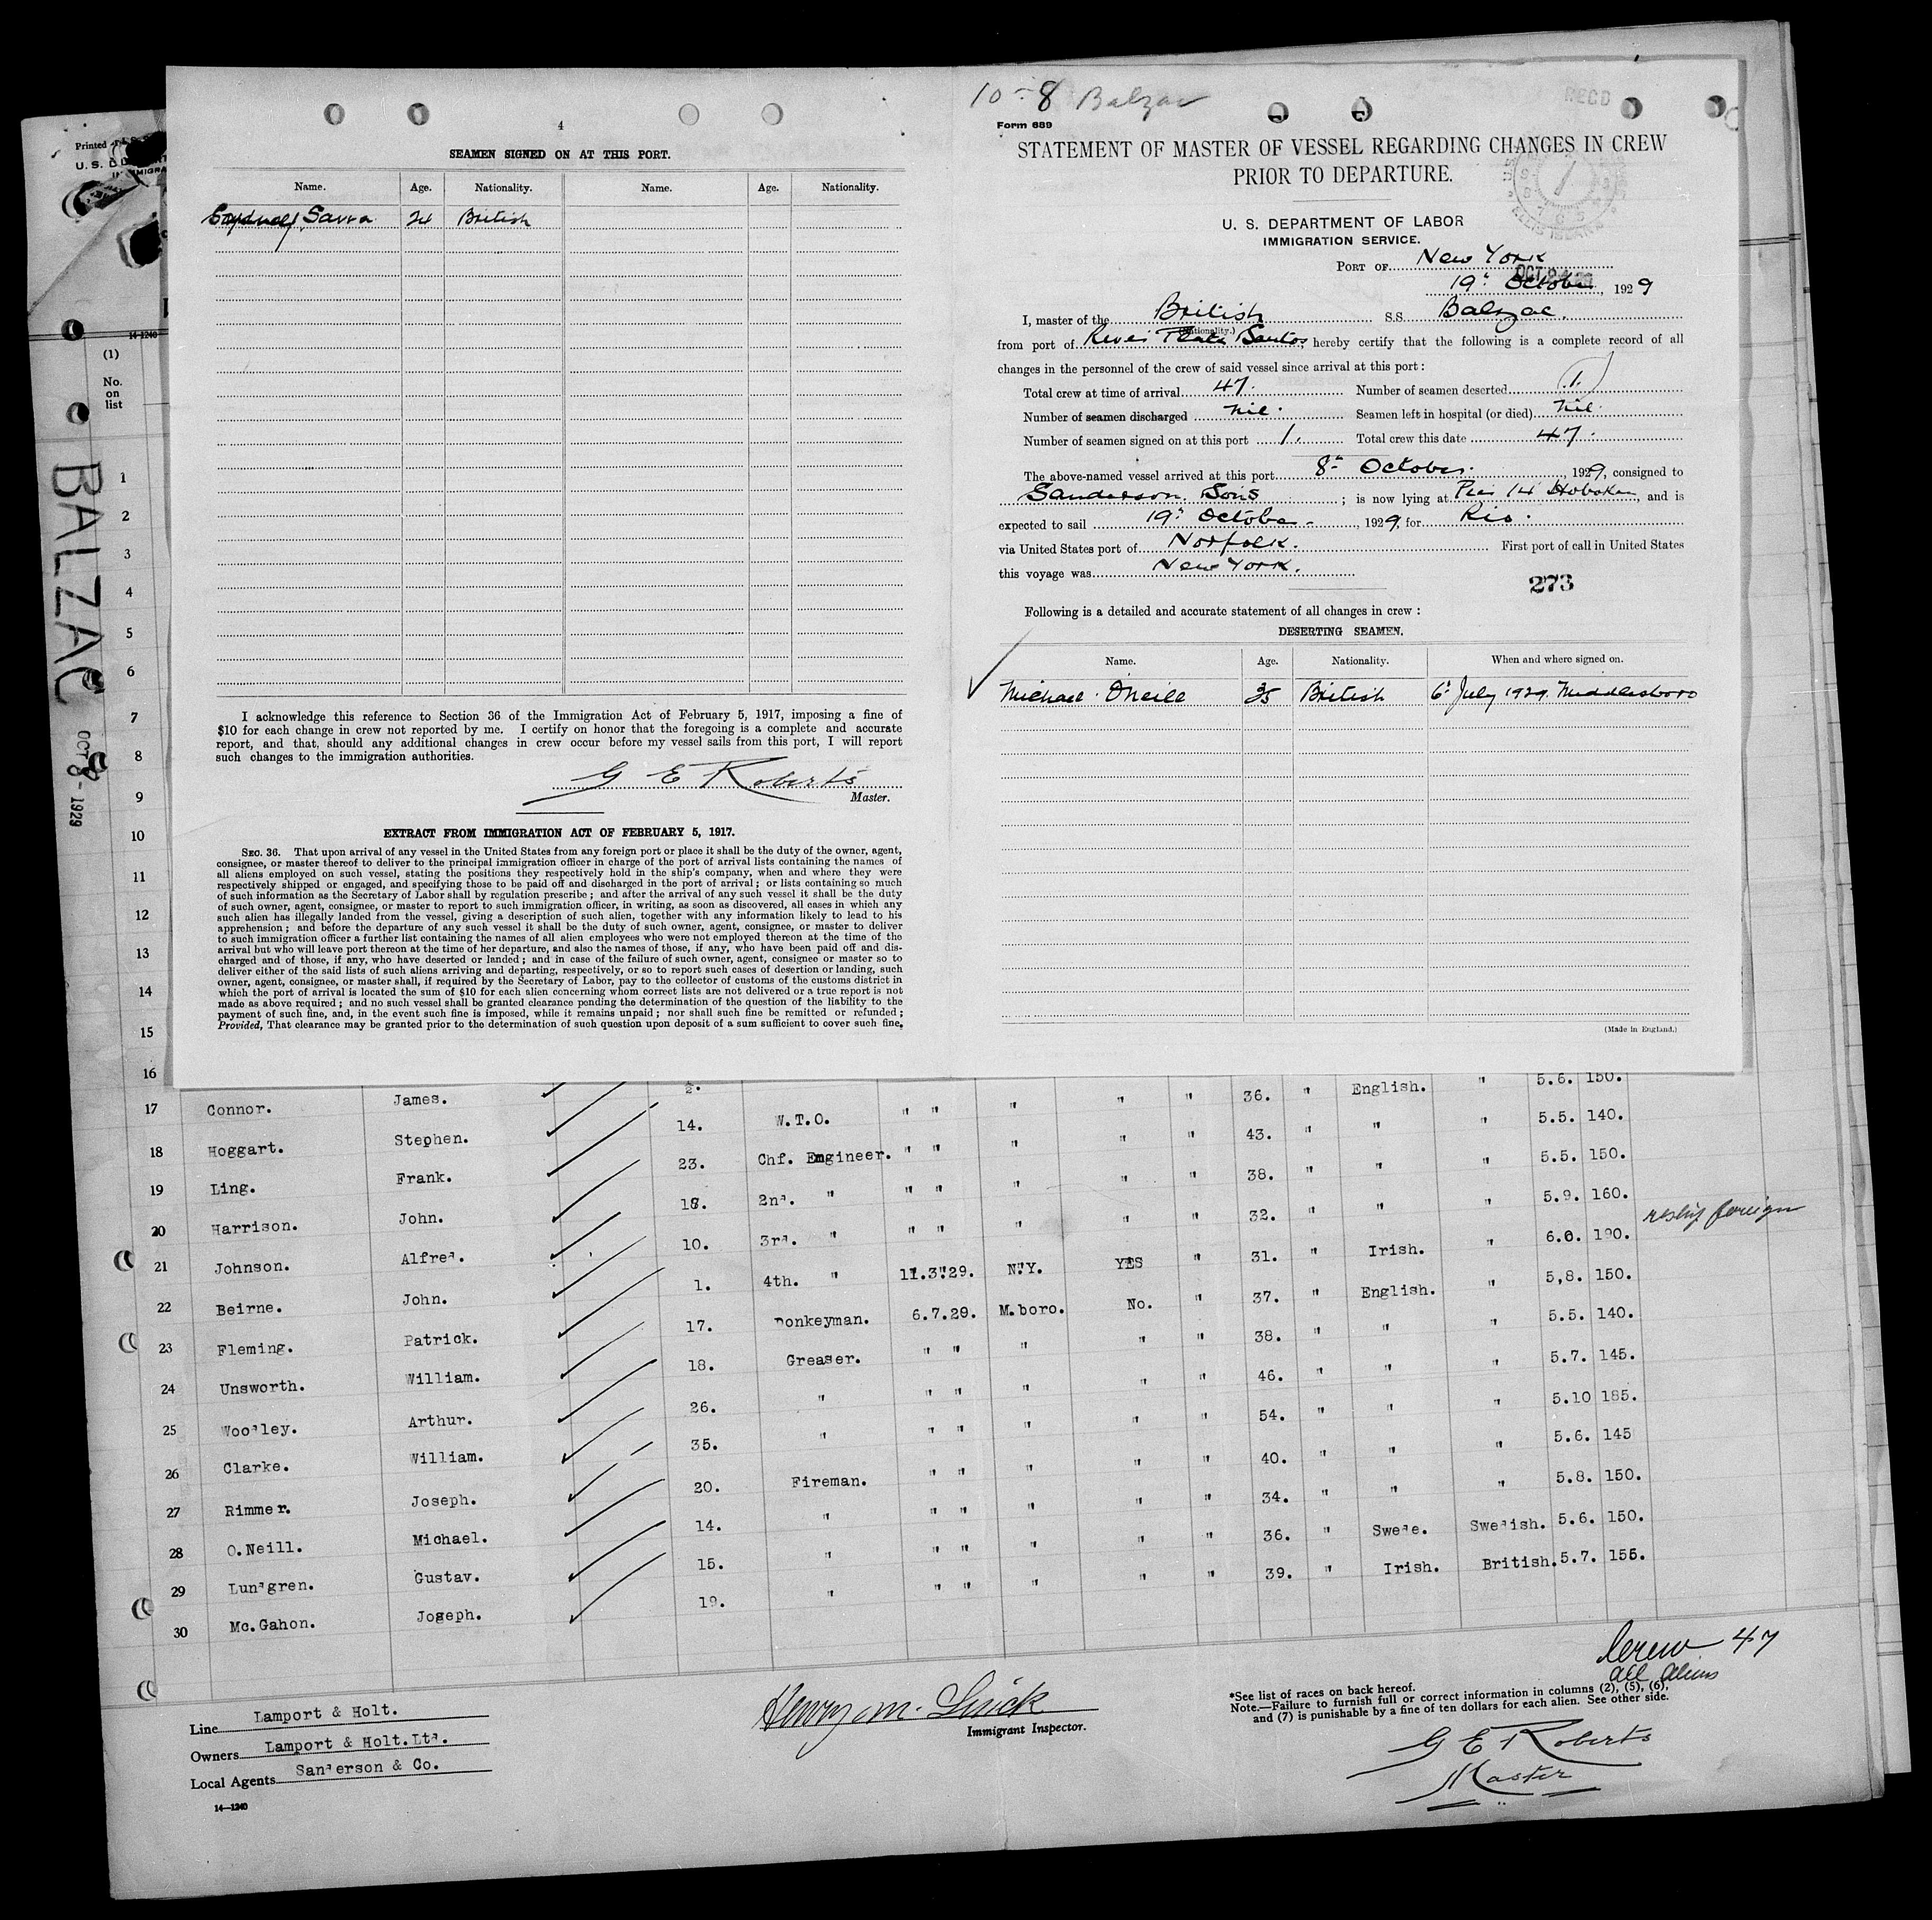 4
SEAMEN SIGNED ON AT THIS PORT.
Name. Age. Nationality. Name. Age. Nationality.
Savva 24 British
I acknowledge this reference to Section 36 of the Immigration Act of February 5, 1917, imposing a fine of
$10 for each change in crew not reported by me. I certify on honor that the foregoing is a complete and accurate
report, and that, should any additional changes in crew occur before my vessel sails from this port, I will report
such changes to the immigration authorities.
G E Roberts
Master.
EXTRACT FROM IMMIGRATION ACT OF FEBRUARY 5, 1917.
SEC. 36. That upon arrival of any vessel in the United States from any foreign port or place it shall be the duty of the owner, agent,
consignee, or master thereof to deliver to the principal immigration officer in charge of the port of arrival lists containing the names of
all aliens employed on such vessel, stating the positions they respectively hold in the ship's company, when and where they were
respectively shipped or engaged, and specifying those to be paid off and discharged in the port of arrival; or lists containing so much
of such information as the Secretary of Labor shall by regulation prescribe; and after the arrival of any such vessel it shall be the duty
of such owner, agent, consignee, or master to report to such immigration officer, in writing, as soon as discovered, all cases in which any
such alien has illegally landed from the vessel, giving a description of such alien, together with any information likely to lead to his
apprehension; and before the departure of any such vessel it shall be the duty of such owner, agent, consignee, or master to deliver
to such immigration officer a further list containing the names of all alien employees who were not employed thereon at the time of the
arrival but who will leave port thereon at the time of her departure, and also the names of those, if any, who have been paid off and dis-
charged and of those, if any, who have deserted or landed; and in case of the failure of such owner, agent, consignee or master so to
deliver either of the said lists of such aliens arriving and departing, respectively, or so to report such cases of desertion or landing, such
owner, agent, consignee, or master shall, if required by the Secretary of Labor, pay to the collector of customs of the customs district in
which the port of arrival is located the sum of $10 for each alien concerning whom correct lists are not delivered or a true report is not
made as above required; and no such vessel shall be granted clearance pending the determination of the question of the liability to the
payment of such fine, and, in the event such fine is imposed, while it remains unpaid; nor shall such fine be remitted or refunded;
Provided, That clearance may be granted prior to the determination of such question upon deposit of a sum sufficient to cover such fine.
10-8 Balzac
RECD
Form 689
STATEMENT OF MASTER OF VESSEL REGARDING CHANGES IN CREW
PRIOR TO DEPARTURE.
U. S. DEPARTMENT OF LABOR
IMMIGRATION SERVICE.
ELLIS ISLAND
PORT OF New York
19th October, 1929
I, master of the British S.S. Balzac.
(Nationality.)
from port of River Plate Santos hereby certify that the following is a complete record of all
changes in the personnel of the crew of said vessel since arrival at this port:
Total crew at time of arrival 47. Number of seamen deserted 1.
Number of seamen discharged nil. Seamen left in hospital (or died) nil.
Number of seamen signed on at this port 1. Total crew this date 47.
The above-named vessel arrived at this port 8th October. 1929, consigned to
Sanderson Sons; is now lying at Pier 14 Hoboken, and is
expected to sail 19th October, 1929, for Rio.
via United States port of Norfolk. First port of call in United States
this voyage was New York.
273
Following is a detailed and accurate statement of all changes in crew:
DESERTING SEAMEN.
Name. Age. Nationality. When and where signed on.
Michael O'Neill 35 British 6th July 1929. Middlesboro
(Made in England.)
Printed
U. S.
14-1240
(1)
No.
on
list
BALZAC
OCT 8 - 1929
1
2
3
4
5
6
7
8
9
10
11
12
13
14
15
16 5.6. 150.
17 Connor. James. 14. W.T.O. " " " " " 36. " English. " 5.5. 140.
18 Hoggart. Stephen. 23. Chf. Engineer. " " " " " 43. " " " 5.5. 150.
19 Ling. Frank. 18. 2nd. " " " " " " 38. " " " 5.9. 160.
20 Harrison. John. 10. 3rd. " " " " " " 32. " " " 6.0. 190. reship foreign
21 Johnson. Alfred. 1. 4th. " 11.3.29. N.Y. YES " 31. " Irish. " 5,8. 150.
22 Beirne. John. 17. Donkeyman. 6.7.29. M.boro. No. " 37. " English. " 5.5. 140.
23 Fleming. Patrick. 18. Greaser. " " " " " 38. " " " 5.7. 145.
24 Unsworth. William. 26. " " " " " " 46. " " " 5.10 185.
25 Woodley. Arthur. 35. " " " " " " 54. " " " 5.6. 145
26 Clarke. William. 20. Fireman. " " " " " 40. " " " 5.8. 150.
27 Rimmer. Joseph. 14. " " " " " " 34. " " " 5.6. 150.
28 O.Neill. Michael. 15. " " " " " " 36. " Swede. Swedish. 5.7. 155.
29 Lundgren. Gustav. 19. " " " " " " 39. " Irish. British.
30 Mc.Gahon. Joseph.
Crew 47
all aliens
Line Lamport & Holt.
Owners Lamport & Holt.Ltd.
Local Agents Sanderson & Co.
14—1240
Immigrant Inspector.
*See list of races on back hereof.
Note.—Failure to furnish full or correct information in columns (2), (5), (6),
and (7) is punishable by a fine of ten dollars for each alien. See other side.
G E Roberts
Master